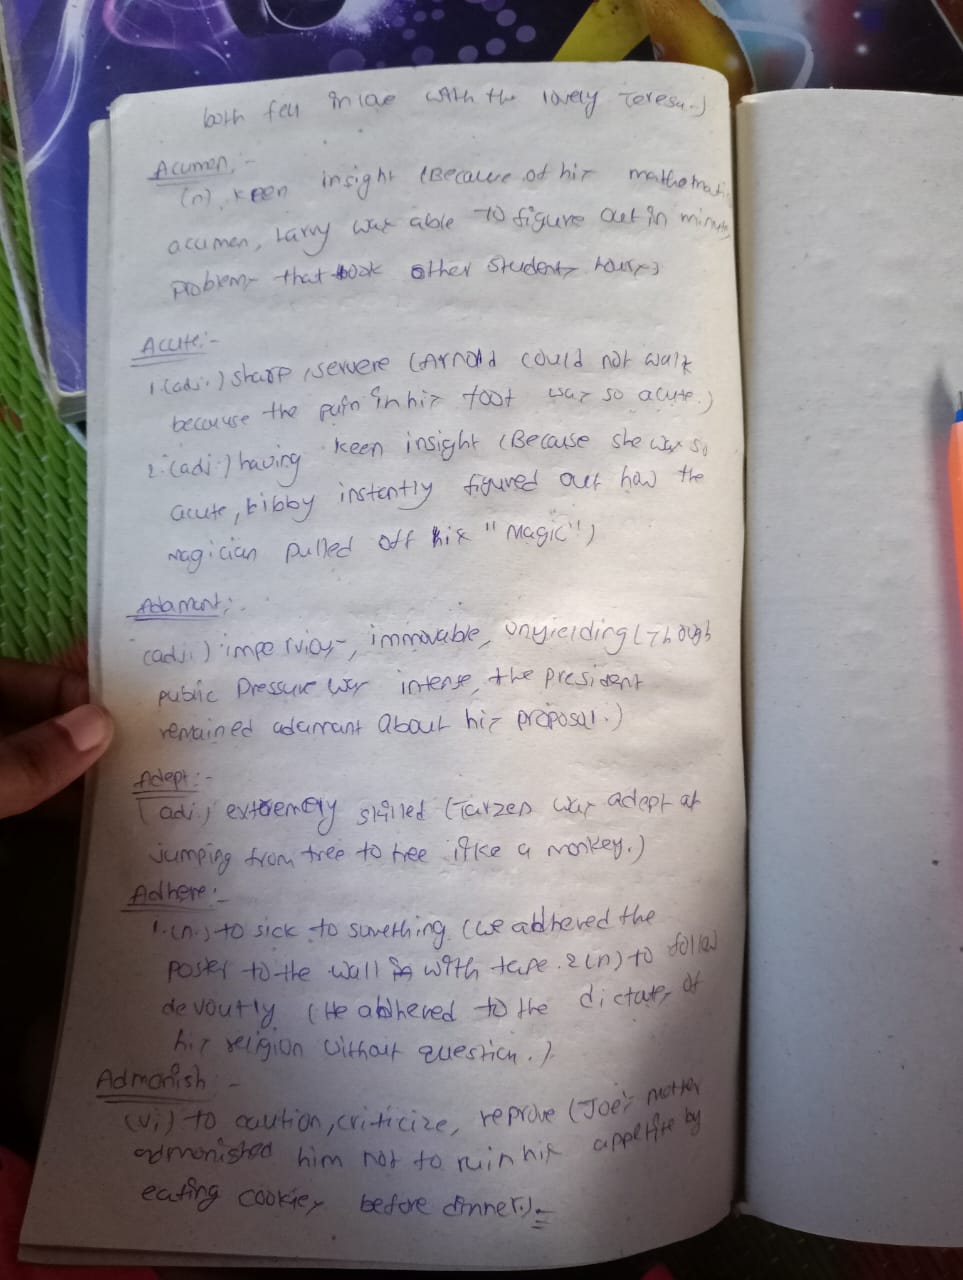 both fell in love with the lovely Teresa.)
Acumen:-
(n). keen insight (Because of his mathemati
acumen, Larry was able to figure out in minutes
problems that took other students hours)
Acute:-
1.(adj.) sharp, servere (Arnold could not walk
because the pain in his foot was so acute.)
2.(adj.) having keen insight (Because she was so
acute, Libby instantly figured out how the
magician pulled off his "Magic")
Adamant:-
(adj.) impervious, immovable, unyielding (Though
public pressure was intense, the president
remained adamant about his proposal.)
Adept:-
(adj.) extremely skilled (Tarzen was adept at
jumping from tree to tree like a monkey.)
Adhere:-
1.(n.) to sick to something. (we adhered the
poster to the wall with tape. 2(n) to follow
devoutly (He adhered to the dictates of
his religion without question.).
Admonish:-
(v.) to caution, criticize, reprove (Joe's mother
admonished him not to ruin his appetite by
eating cookies before dinner.)